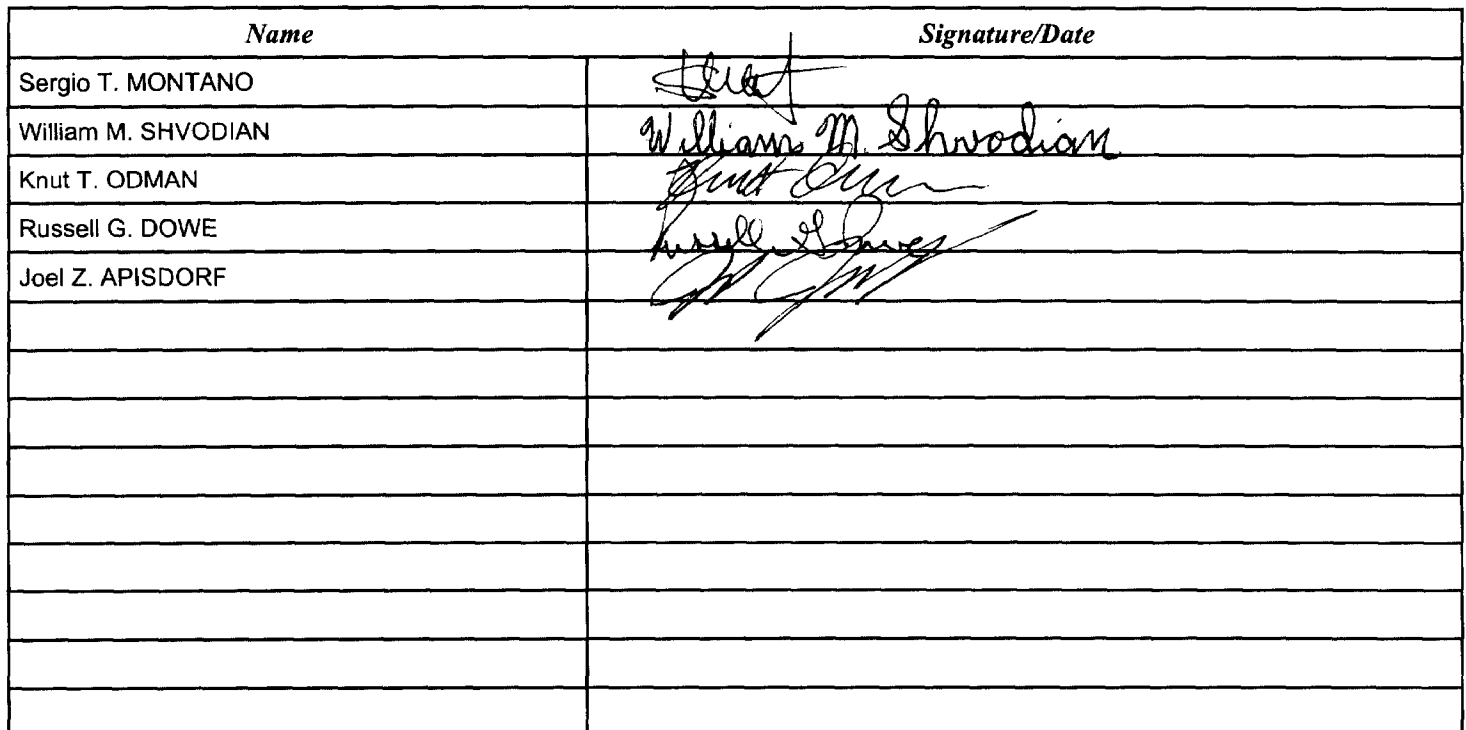 Name Signature/Date
Sergio T. MONTANO
William M. SHVODIAN William M. Shvodian
Knut T. ODMAN Knut
Russell G. DOWE Russell G Dowe
Joel Z. APISDORF